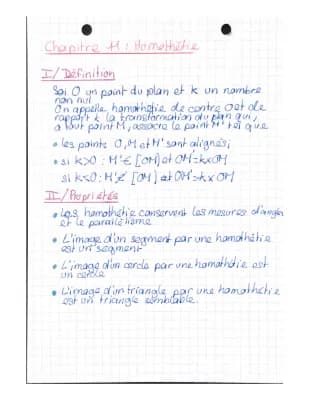 Chapitre 11 : Homothétie
I/ Définition
Soi O un point du plan et k un nombre
non nul
On appelle homothétie de centre O et de
rapport k la transformation du plan qui,
à tout point M, associe le point M' tel que
• les points O, M et M' sont alignés;
• si k>0 : M' ∈ [OM) et OM'=k×OM
si k<0 : M' ∉ [OM) et OM'=-k×OM
II/ Propriétés
• Les homothétie conservent les mesures d'angles
et le parallélisme
• L'image d'un segment par une homothétie
est un segment
• L'image d'un cercle par une homothétie est
un cercle
• L'image d'un triangle par une homothétie
est un triangle semblable.